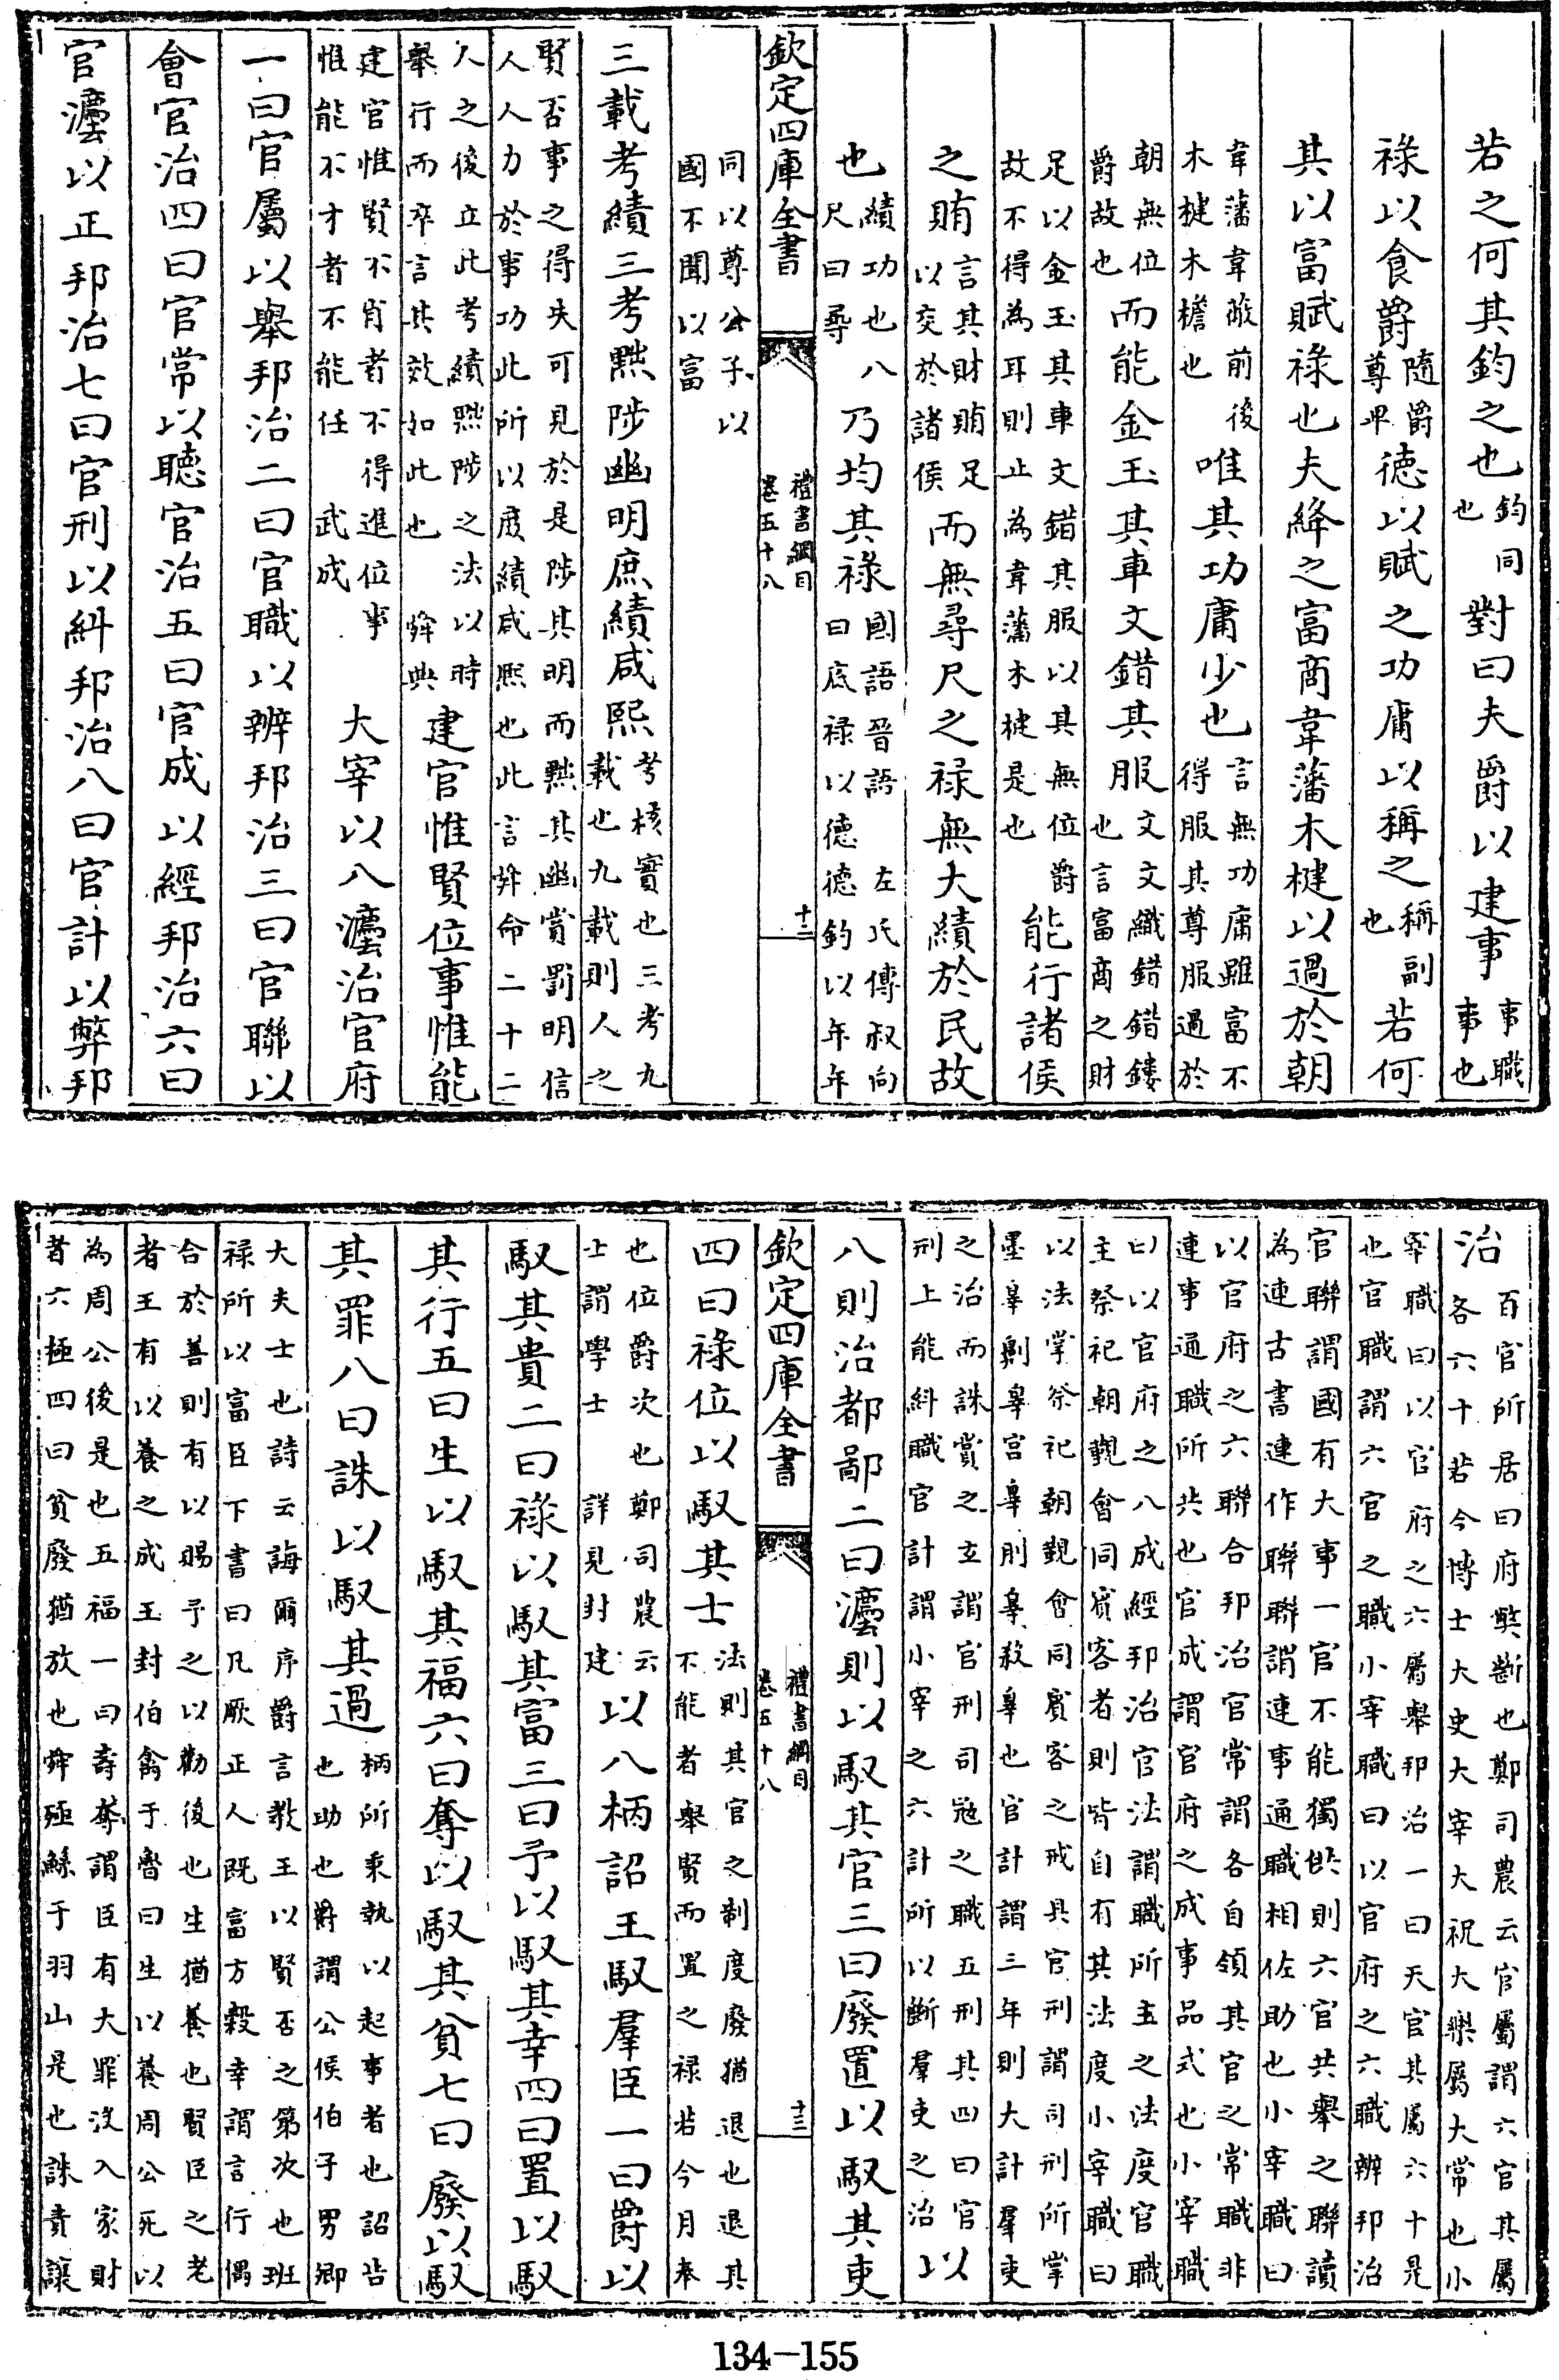 若之何其鈞之也鈞同也對曰夫爵以建事事職事也
祿以食爵隨爵尊卑德以賦之功庸以稱之稱副也若何
其以富賦祿也夫絳之富商韋藩木楗以過於朝
韋藩韋蔽前後木楗木檐也唯其功庸少也言無功庸雖富不得服其尊服過於
朝無位爵故也而能金玉其車文錯其服文文織錯錯鏤也言富商之財
足以金玉其車文錯其服以其無位爵故不得為耳則止為韋藩木楗是也能行諸侯
之賄言其財賄足以交於諸侯而無尋尺之祿無大績於民故
也績功也八尺曰尋乃均其祿國語晉語 左氏傳叔向曰底祿以德德鈞以年年
欽定四庫全書 禮書綱目 卷五十八 十二
同以尊公子以國不聞以富
三載考績三考黜陟幽明庶績咸熙考核實也三考九載也九載則人之
賢否事之得失可見於是陟其明而黜其幽賞罰明信人人力於事功此所以庶績咸熙也此言舜命二十二
人之後立此考績黜陟之法以時舉行而卒言其效如此也 舜典建官惟賢位事惟能
建官惟賢不肖者不得進位事惟能不才者不能任 武成 大宰以八灋治官府
一曰官屬以舉邦治二曰官職以辨邦治三曰官聯以
會官治四曰官常以聽官治五曰官成以經邦治六曰
官灋以正邦治七曰官刑以糾邦治八曰官計以弊邦
治百官所居曰府弊斷也鄭司農云官屬謂六官其屬各六十若今博士大史大宰大祝大樂屬大常也小
宰職曰以官府之六屬舉邦治一曰天官其屬六十是也官職謂六官之職小宰職曰以官府之六職辨邦治
官聯謂國有大事一官不能獨供則六官共舉之聯讀為連古書連作聯聯謂連事通職相佐助也小宰職曰
以官府之六聯合邦治官常謂各自領其官之常職非連事通職所共也官成謂官府之成事品式也小宰職
曰以官府之八成經邦治官法謂職所主之法度官職主祭祀朝覲會同賓客者則皆自有其法度小宰職曰
以法掌祭祀朝覲會同賓客之戒具官刑謂司刑所掌墨辠劓辠宮辠刖辠殺辠也官計謂三年則大計羣吏
之治而誅賞之玄謂官刑司冦之職五刑其四曰官刑上能糾職官計謂小宰之六計所以斷羣吏之治以
八則治都鄙二曰灋則以馭其官三曰廢置以馭其吏
四曰祿位以馭其士法則其官之制度廢猶退也退其不能者舉賢而置之祿若今月奉
欽定四庫全書 禮書綱目 卷五十八 十三
也位爵次也鄭司農云士謂學士 詳見封建以八柄詔王馭羣臣一曰爵以
馭其貴二曰祿以馭其富三曰予以馭其幸四曰置以馭
其行五曰生以馭其福六曰奪以馭其貧七曰廢以馭
其罪八曰誅以馭其過柄所秉執以起事者也詔告也助也爵謂公侯伯子男卿
大夫士也詩云誨爾序爵言教王以賢否之第次也班祿所以富臣下書曰凡厥正人既富方穀幸謂言行偶
合於善則有以賜予之以勸後也生猶養也賢臣之老者王有以養之成王封伯禽于魯曰生以養周公死以
為周公後是也五福一曰壽奪謂臣有大罪沒入家財者六極四曰貧廢猶放也舜殛鯀于羽山是也誅責讓
134-155